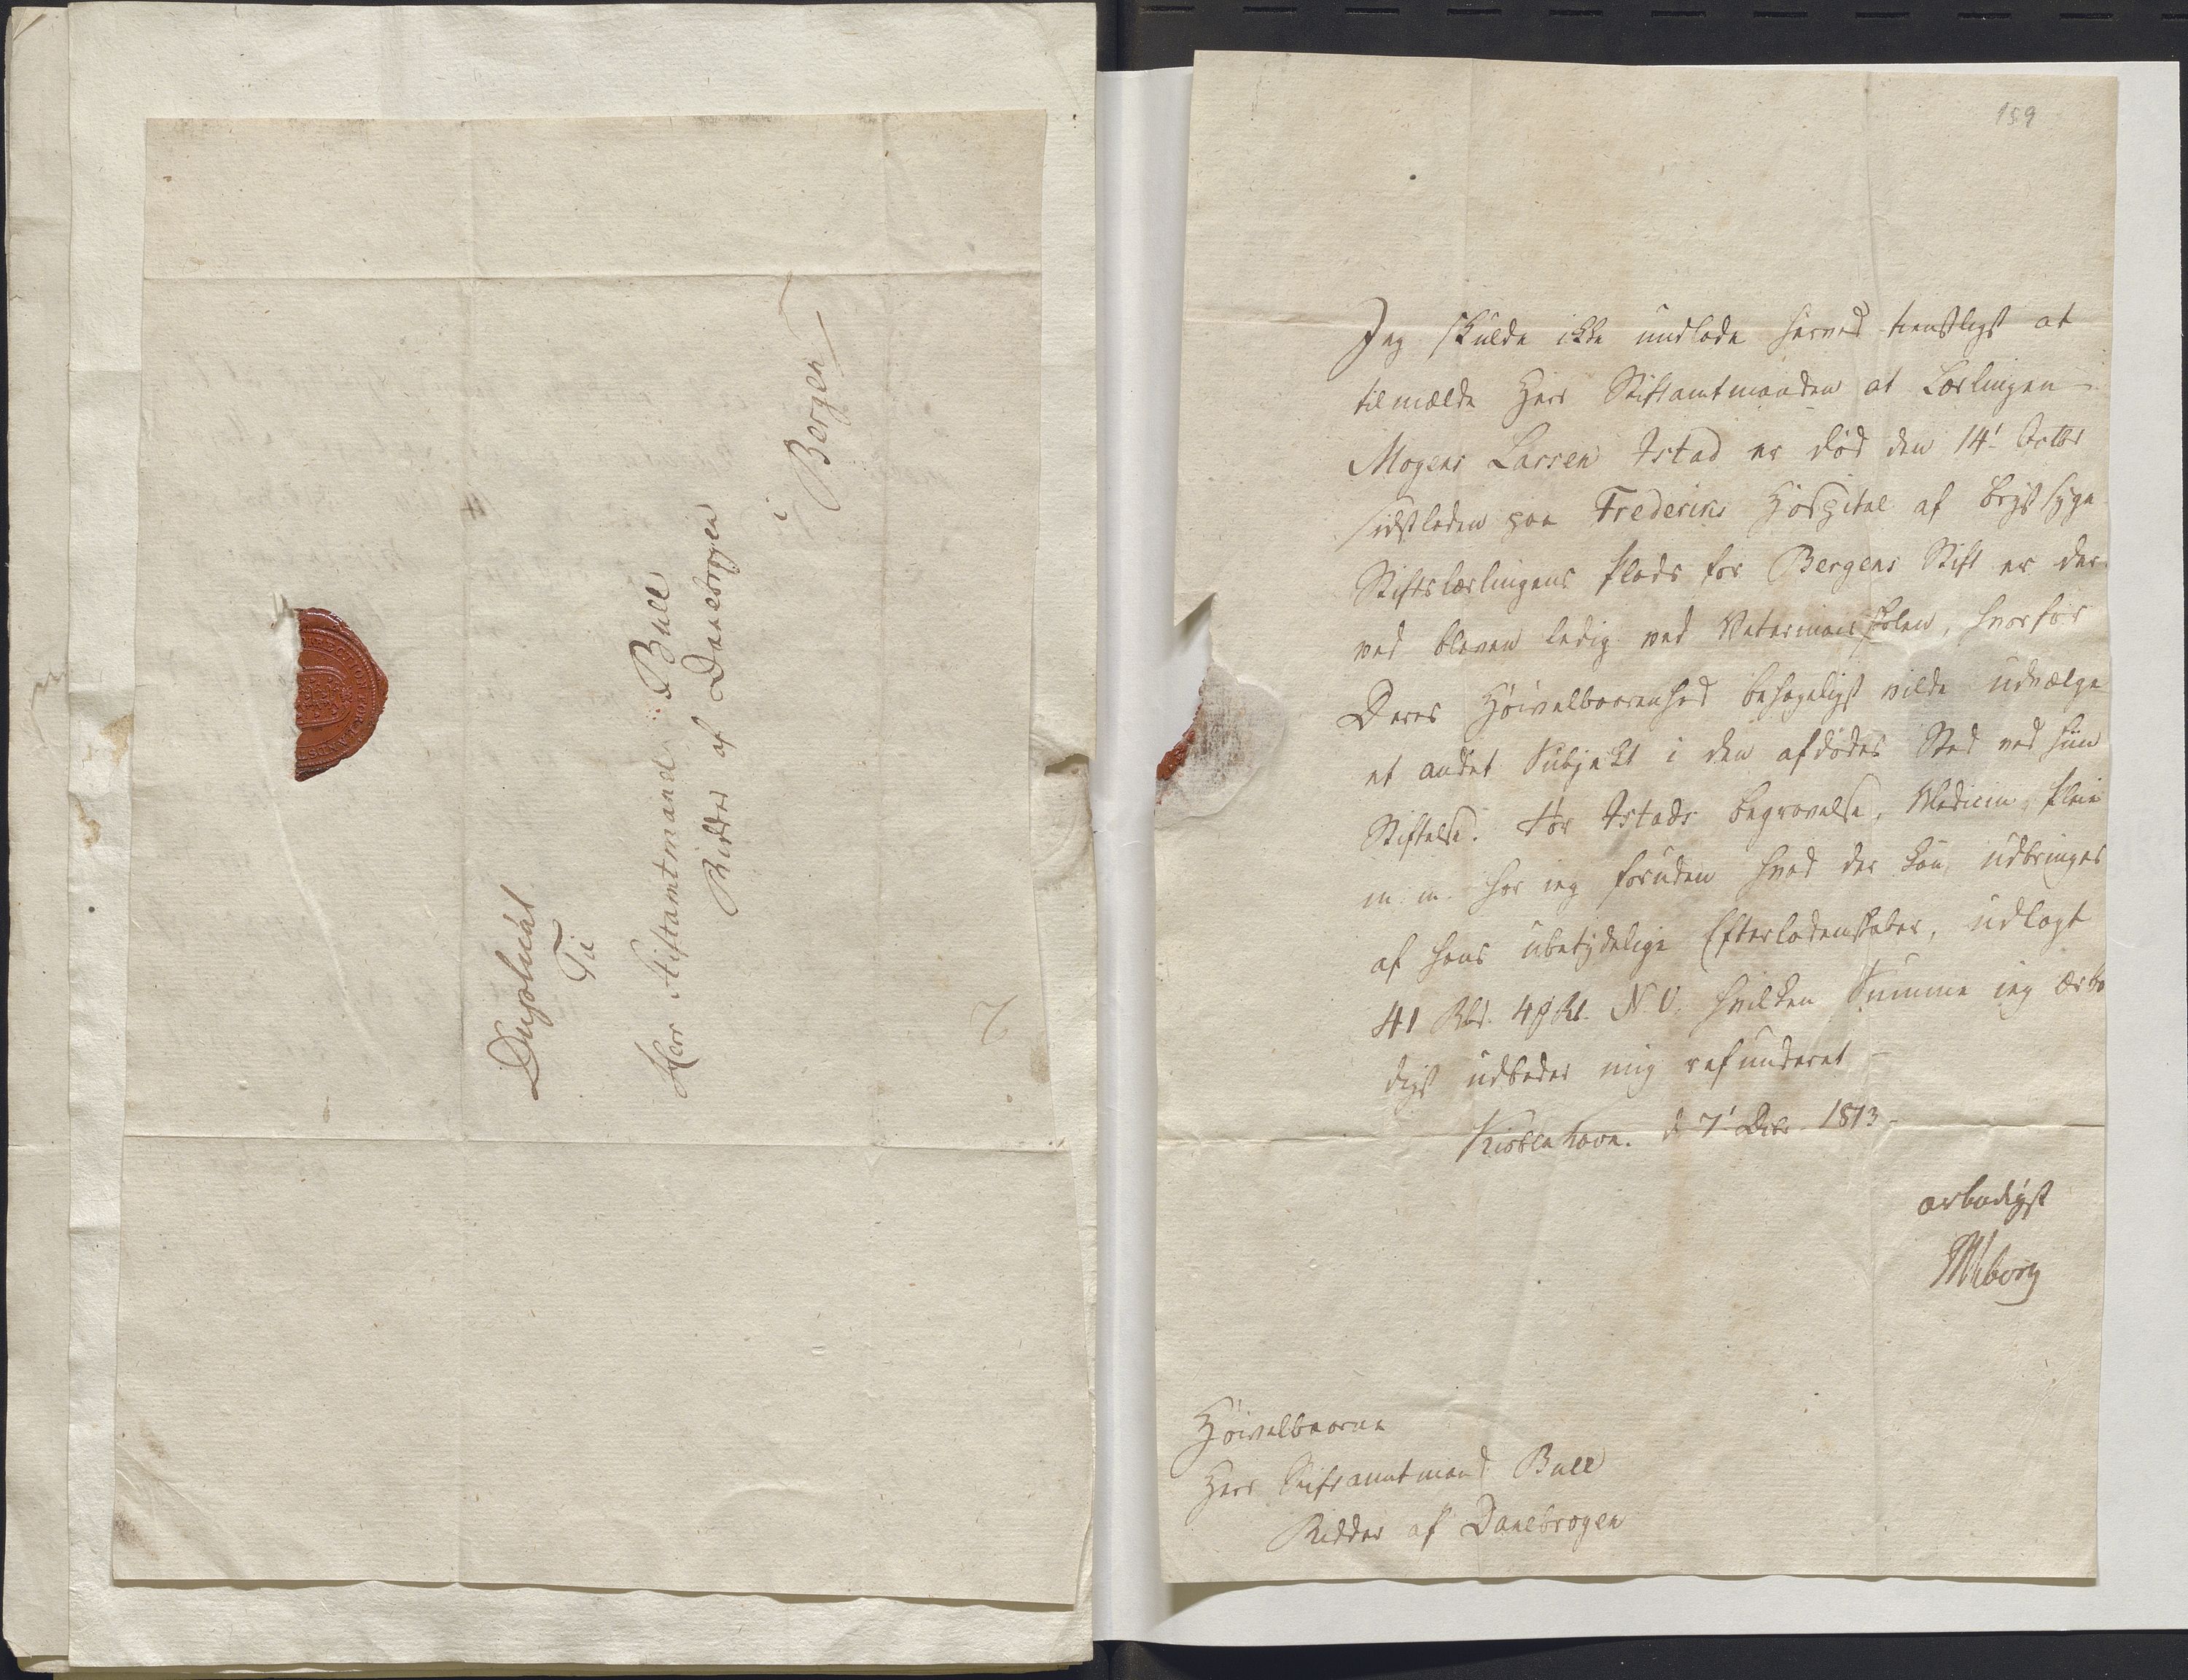 Duplicat
Til
Herr Stiftamtmand Bull
Ridder af Dannebrogen
i
Bergen
159
Jeg skulde ikke undlade herved tienstligst at
tilmælde Herr Stiftamtmanden at Lærlingen
Mogens Larsen Istad er død den 14' Octbr
sidstleden paa Frederiks Hospital af Brystsyge
Stiftslærlingens Plads for Bergens Stift er der
ved bleven ledig ved Veterinairskolen, hvorfor
Deres Høivelbaarenhed behageligst vilde udvælge
et andet Subjekt i den afdødes Sted ved hiin
Stiftelse. For Istads Begravelse, Medicin, Pleie
m. m. har ieg foruden hvad der kan udbringes
af hans ubetydelige Efterladenskaber, udlagt
41 Rbd. 48 ß. N. V. hvilken Summe ieg ærbø
digst udbeder mig refunderet
Kiøbenhavn. d 7' Decbr 1813
ærbødigst
Viborg
Høivelbaarne
Herr Stiftsamtmand Bull
Ridder af Danebrogen